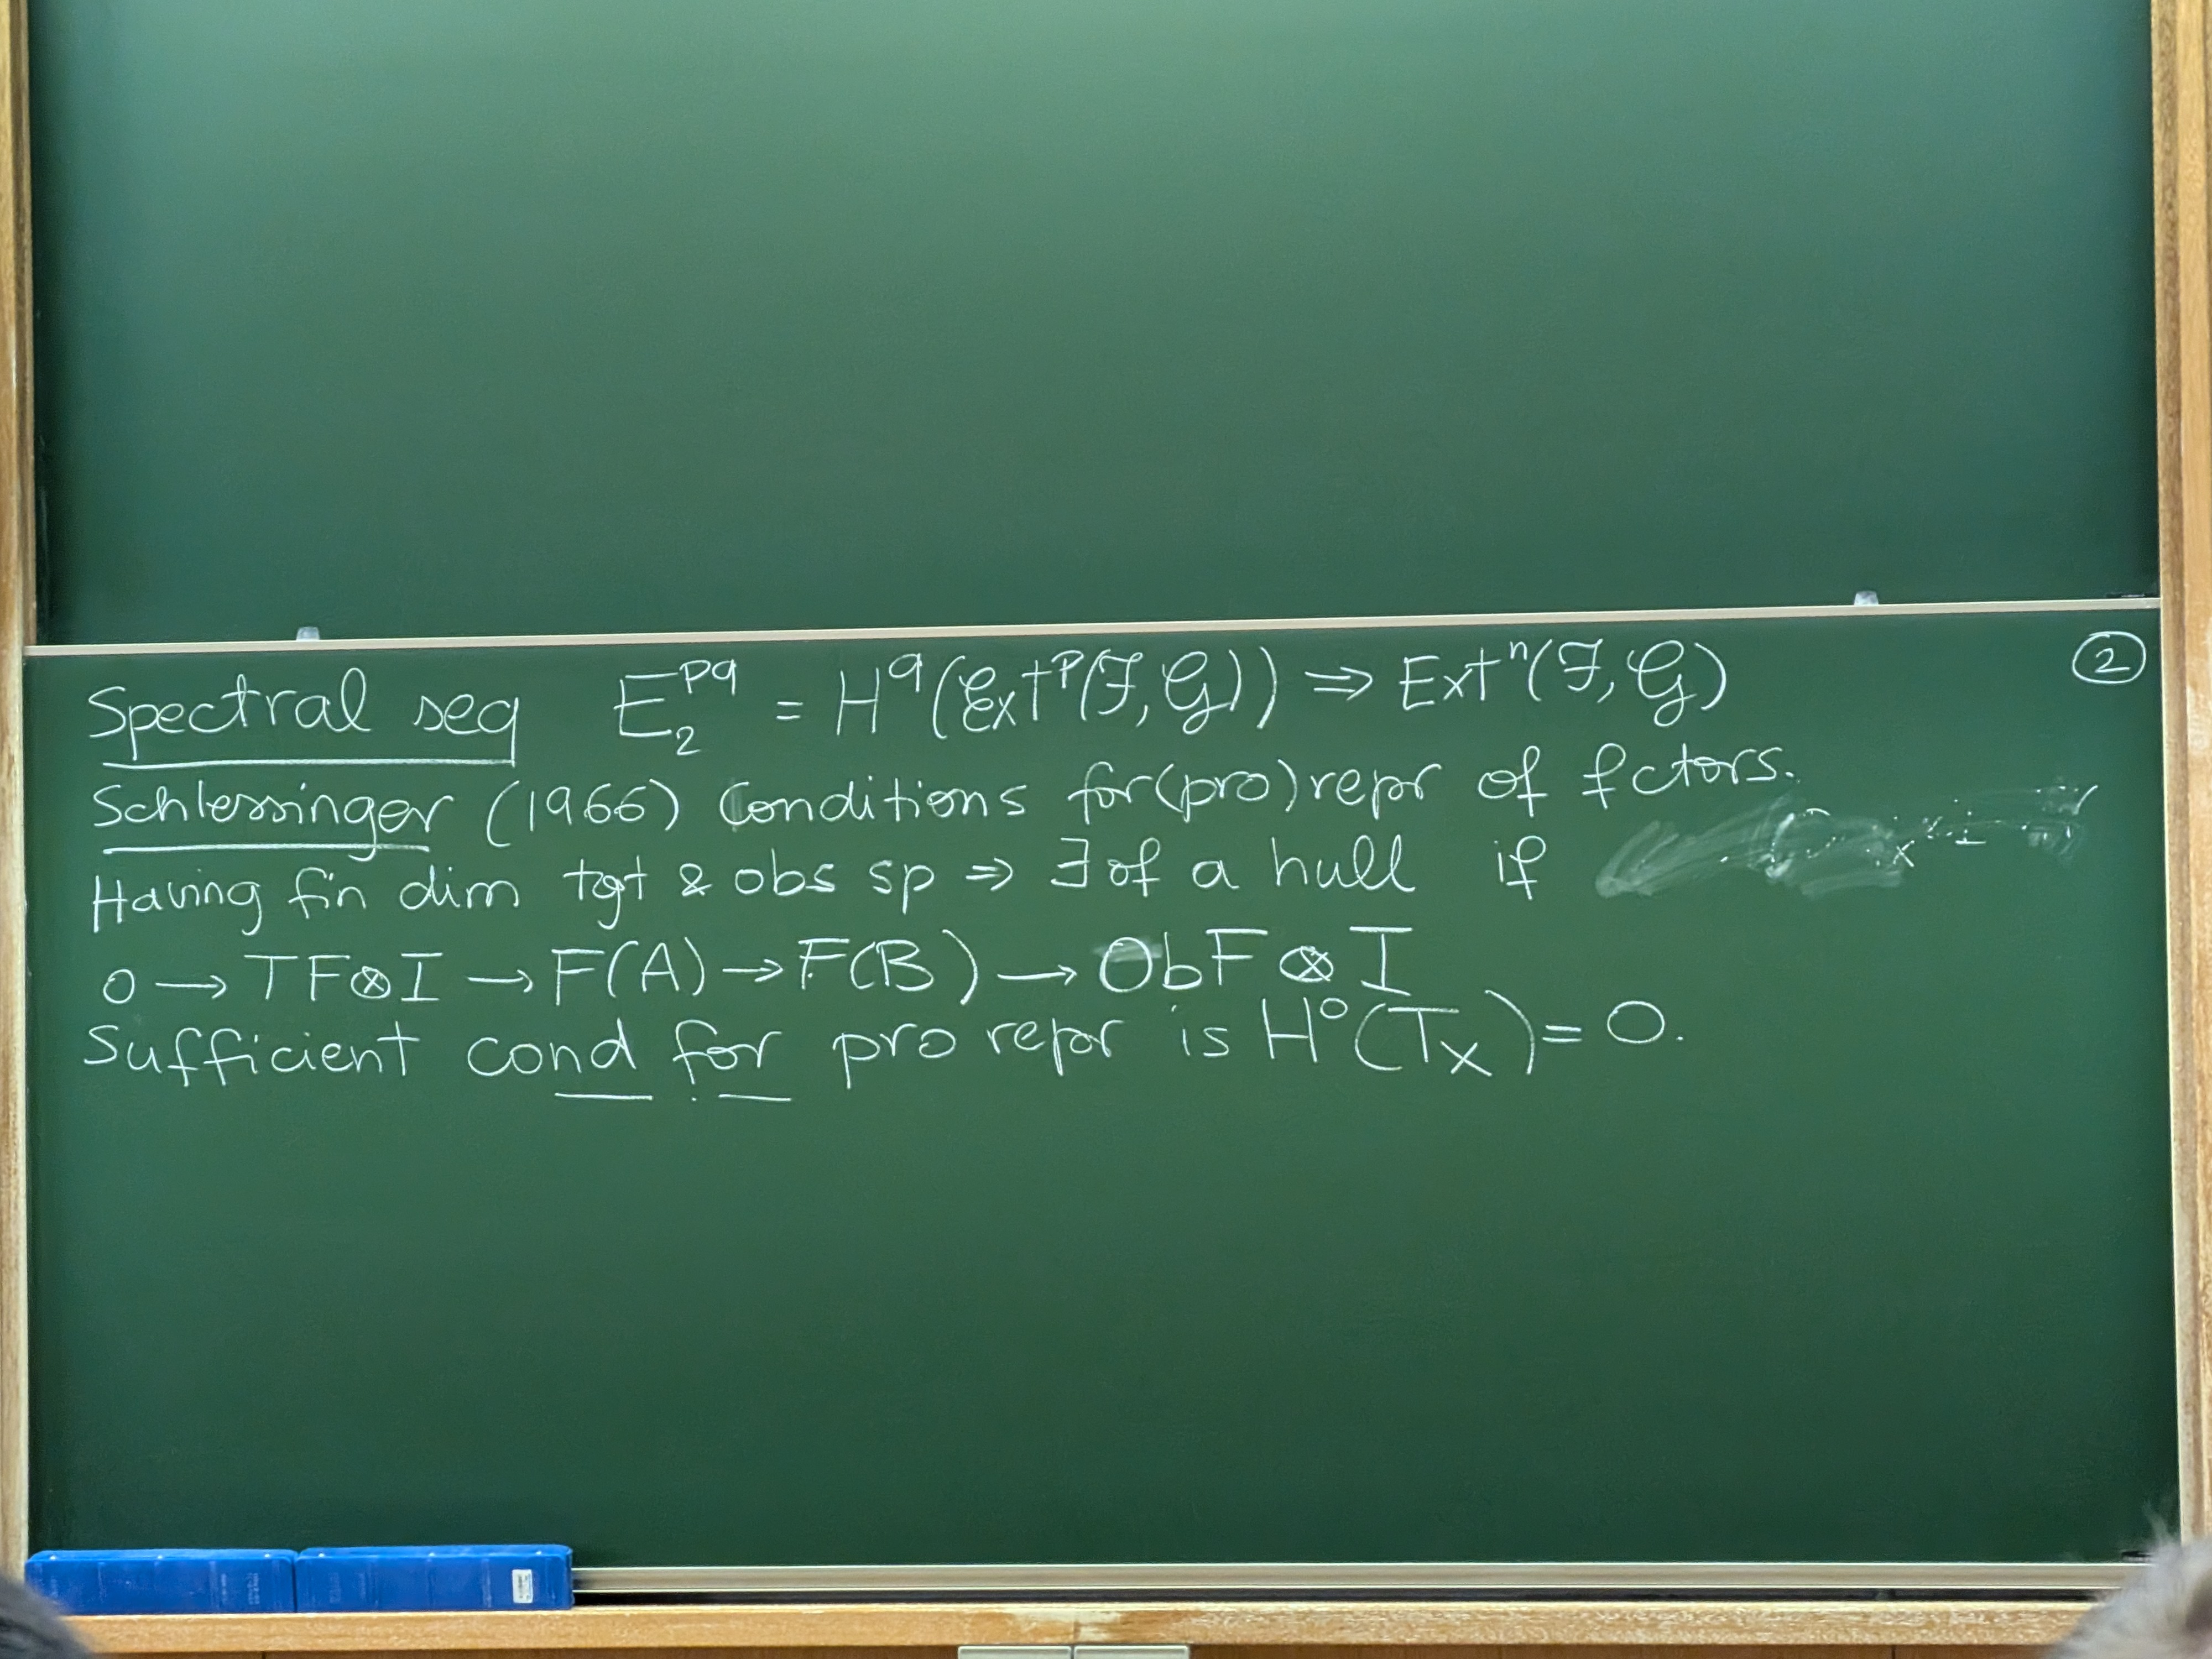 Spectral seq E₂^{pq} = H^q(ℰxt^p(ℱ, 𝒢)) ⇒ Ext^n(ℱ, 𝒢) ②
Schlessinger (1966) Conditions for (pro) repr of fctors.
Having fin dim tgt & obs sp ⇒ ∃ of a hull if
0 → TF⊗I → F(A) → F(B) → ObF ⊗ I
Sufficient cond for pro repr is H⁰(T_X) = 0.